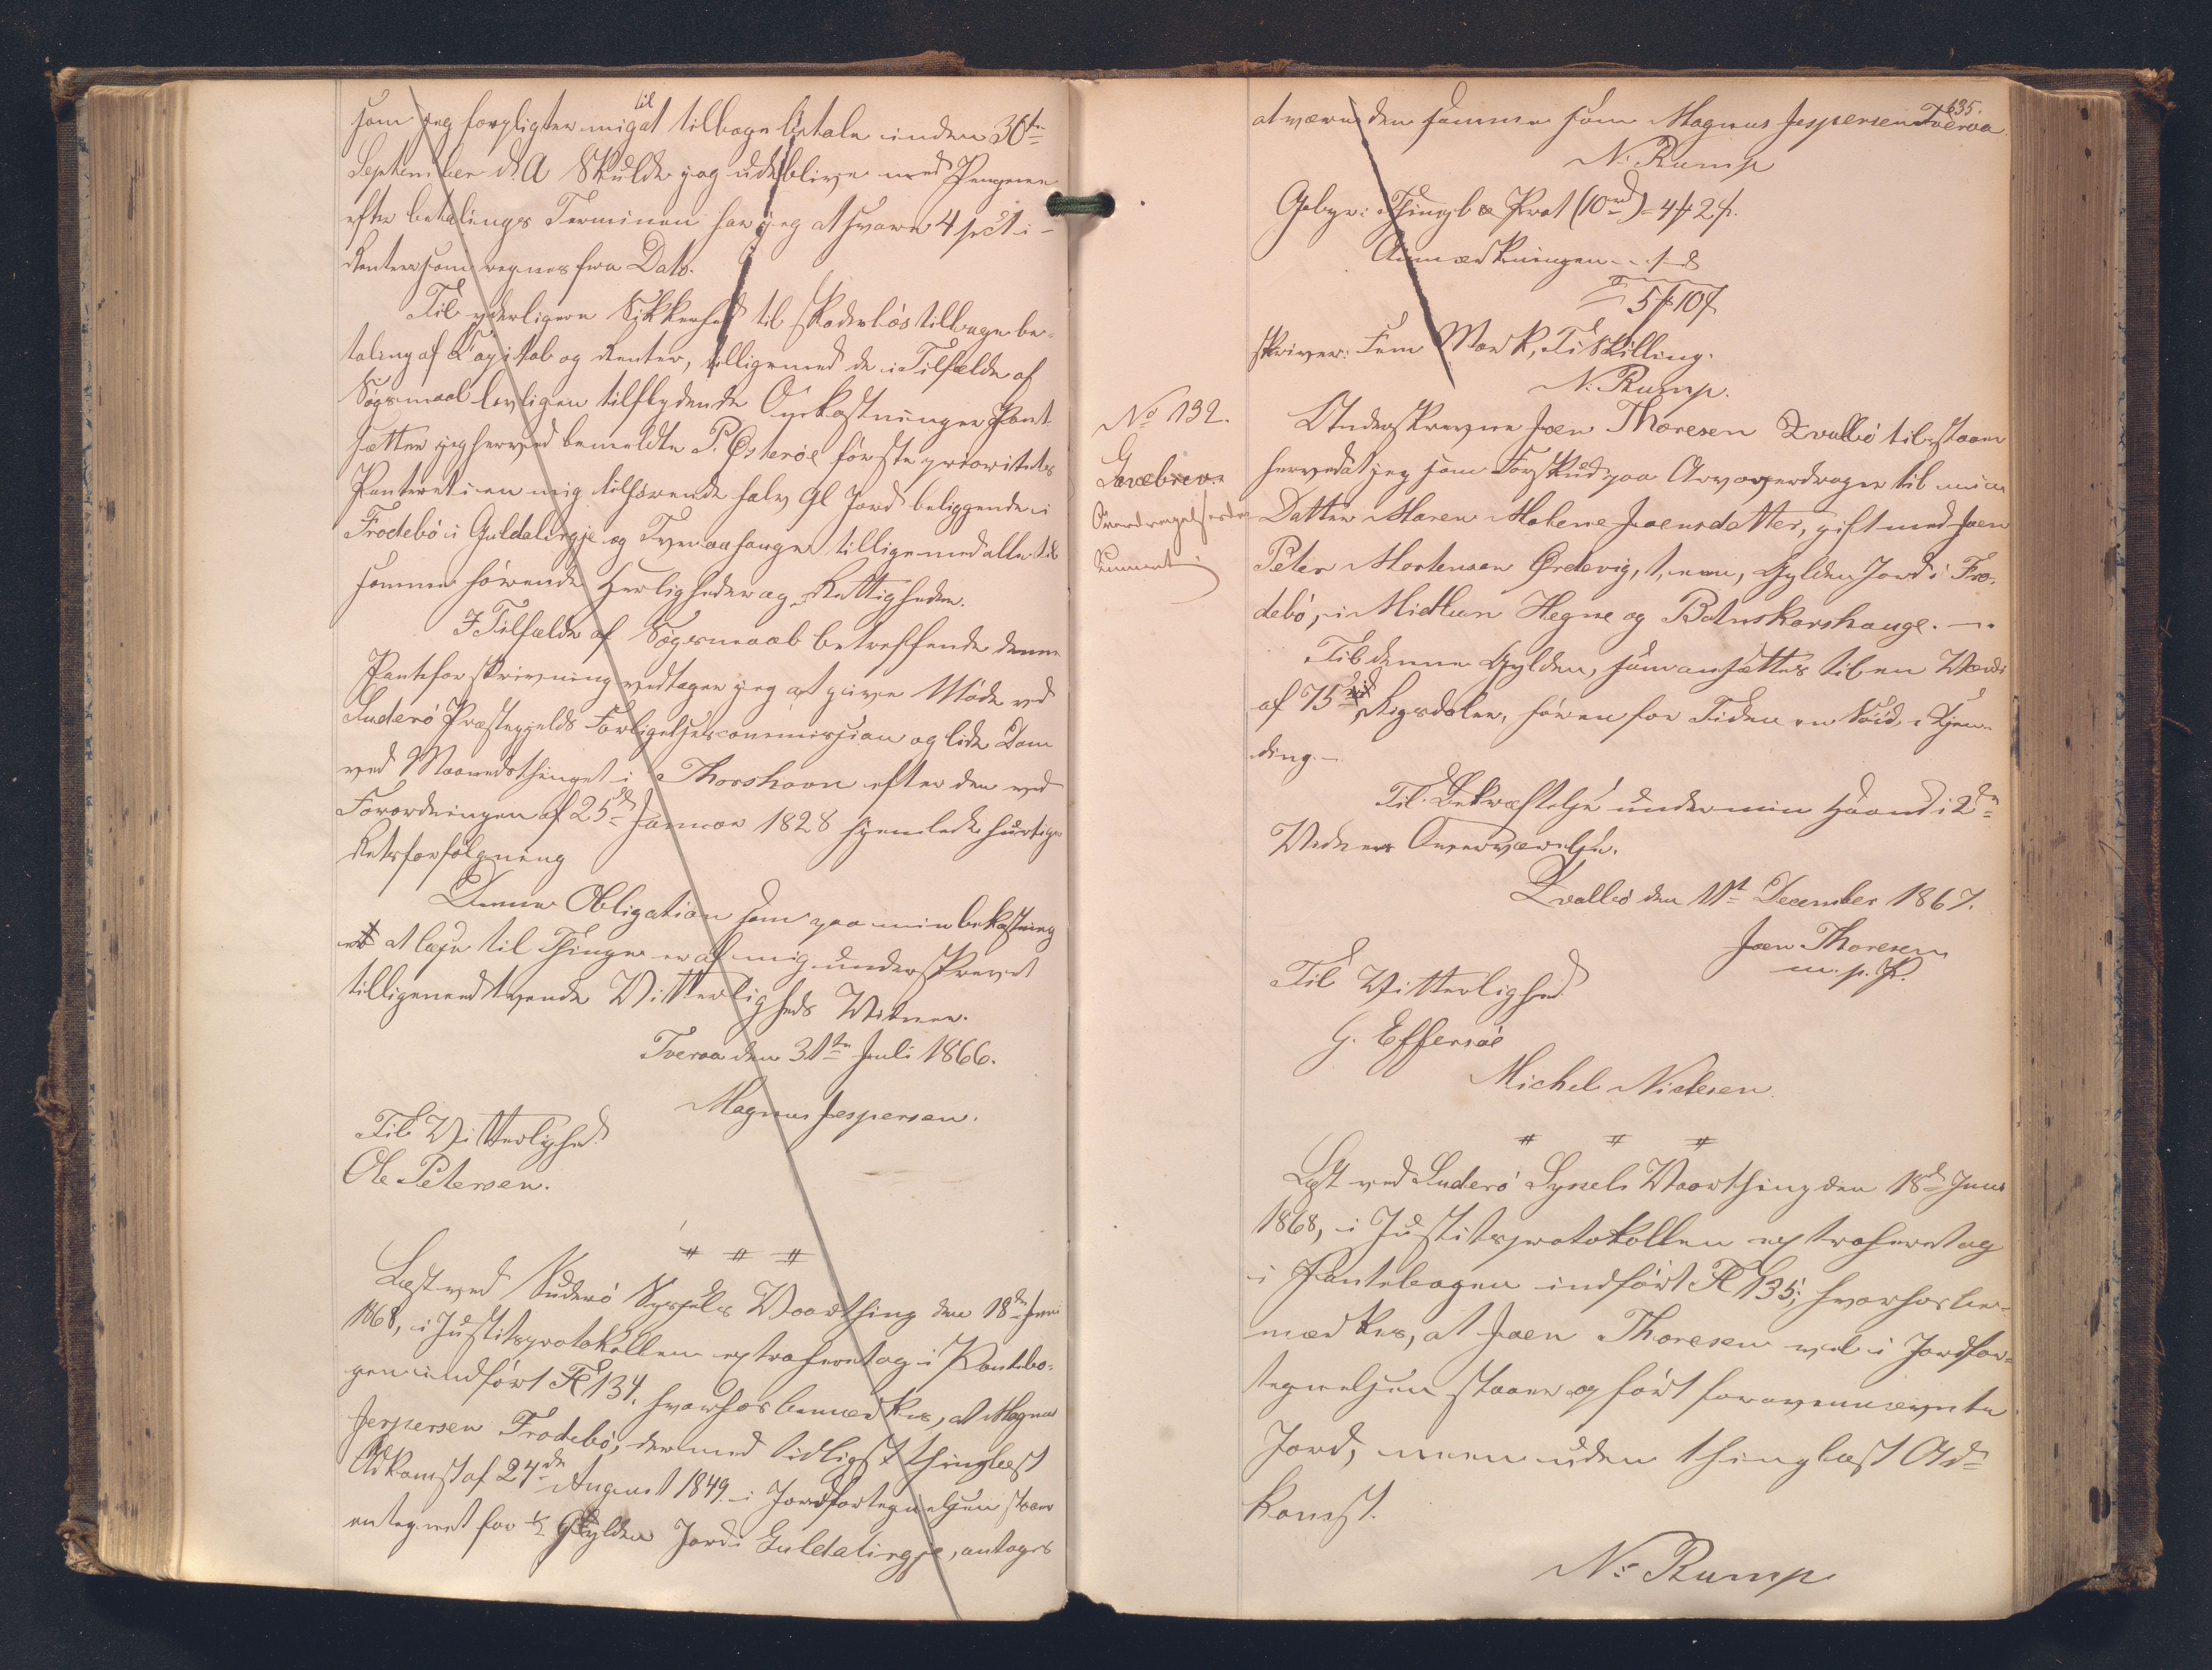 som jeg forpligter mig til at tilbage betale inden 30te
September d. A Skulde jeg udeblive med Pengene
efter betalings Terminen har jeg at svare 4 pCt i
Renter som regnes fra Dato.
Til yderligere Sikkerhed til skadeslös tilbagebe-
taling af Capital og Renter, tilligemed de i Tilfælde af
Sögsmaal lovligen tilflydende Omkostninger Pant
sætter jeg herved bemeldte P. Österöe förste prioritets
Panteret i en mig tilhörende halv Gl Jord beliggende i
Frodebö i Guldalirgje og Tveraahauge tilligemed alle til
samme hörende Herligheder og Rettigheder.
I Tilfælde af Sögsmaal betreffende denne
Panteforskrivning vedtager jeg at give Möde ved
Suderö Præstegjelds Forligelsescommission og lide Dom
ved Maanedsthinget i Thorshavn efter den ved
Forordningen af 25de Januar 1828 hjemlede hurtige
Retsforfölgning
Denne Obligation som paa min bekostning
at læse til Thinge er af mig underskrevet
tilligemed tvende Vitterligheds Vidner.
Tveraa den 31te Juli 1866.
Magnus Jespersen.
Til Vitterlighed
Ole Petersen.
# # #
Læst ved Suderö Syssels Vaarthing den 18de Juni
1868, i Justitsprotokollen extraheret og i Pantebo-
gen indfört Fl 134, hvorhos bemærkes, at Magnus
Jespersen Frodebö, der med tidligst thinglæst
Adkomst af 24de August 1849 i Jordfortegnelsen staaer
antegnet for ½ Gylden Jord i Guldalirgje, antages
135.
at være den samme som Magnus Jespersen Tveraa.
N. Rump
Gebyr: Thingl & Prot (10rd) = 4 # 2 ß.
Anmærkningen - - 1 - 8
5 # 10 ß
skriver: Fem Mark, Ti Skilling.
N. Rump.
No 132.
Gavebrev
Overdragelsesdo-
cument
Underskrevne Joen Thoresen Qvalbö tilstaaer
herved at jeg som Forskud paa Arv overdrager til min
Datter Maren Malene Joensdatter, gift med Joen
Peter Mortensen Öredevig, 1, een, Gylden Jord i Fro-
debö, i Midtun Hegne og Botnskarshauge. -
Til denne Gylden, som ansættes til en Værdi
af 75 Rigsdaler, hörer for Tiden en Söid i Tjen-
ding. -
Til Bekræftelse under min Haand i 2de
Vidners Overværelse.
Qvalbö den 11te December 1867.
Joen Thoresen
m. p. P.
Til Vitterlighed
G. Effersöe
Michel Nielsen.
# # #
Læst ved Suderö Syssels Vaarthing den 18de Juni
1868, i Justitsprotokollen extraheret og
i Pantebogen indfört Fl 135, hvorhos be-
mærkes, at Joen Thoresen vel i Jordfor-
tegnelsen staaer opfört for ovennævnte
Jord, men uden thinglæst Ad-
komst.
N. Rump